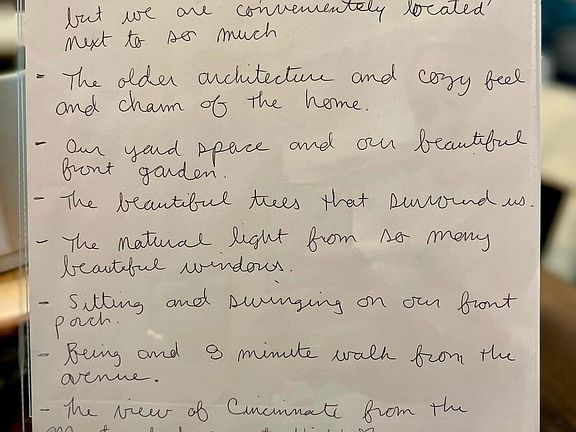 but we are conveniently located
next to so much
- The older architecture and cozy feel
and charm of the home.
- Our yard space and our beautiful
front garden.
- The beautiful trees that surround us.
- The natural light from so many
beautiful windows.
- Sitting and swinging on our front
porch.
- Being and 9 minute walk from the
avenue.
- The view of Cincinnati from the